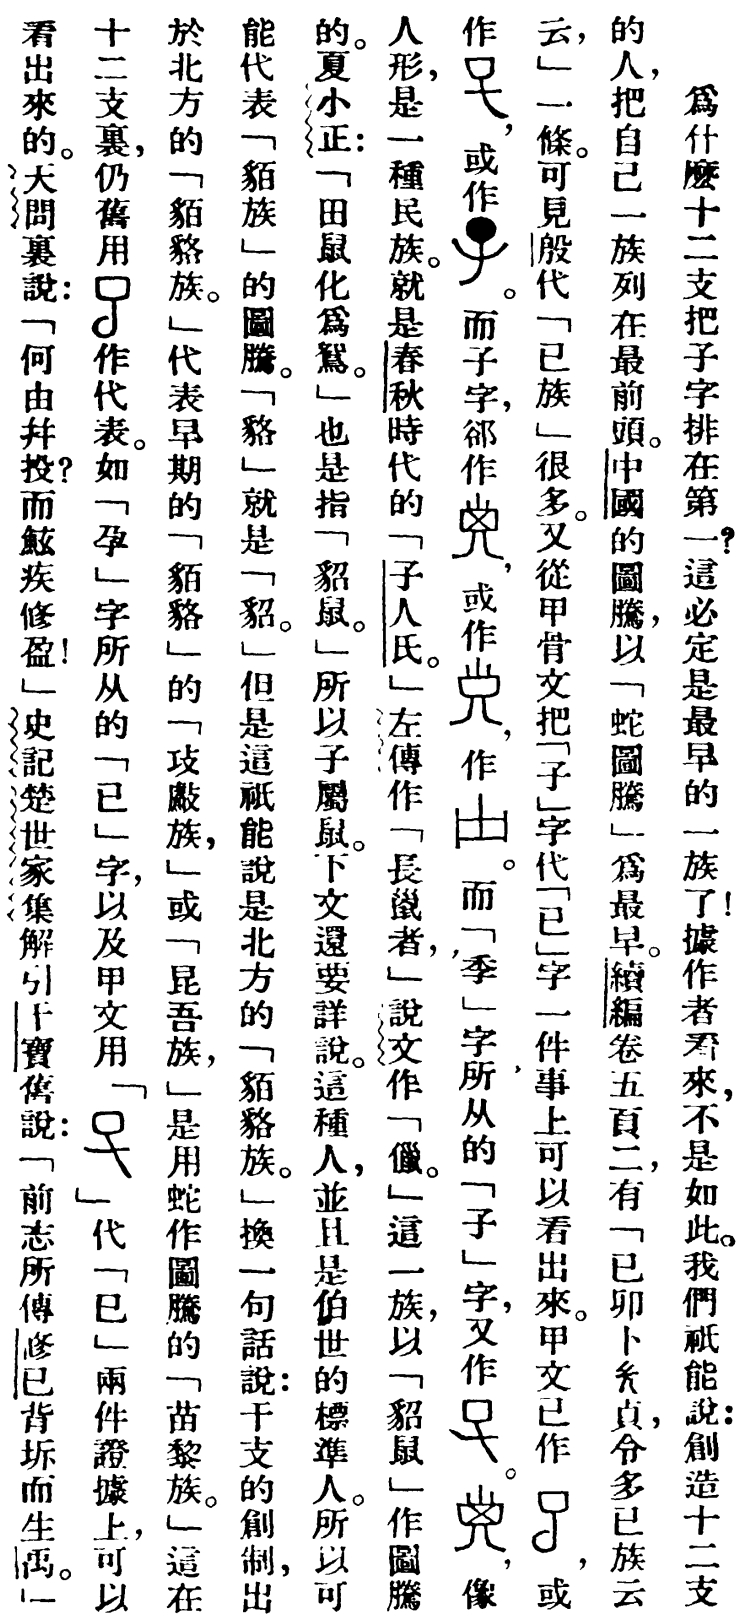 爲什麼十二支把子字排在第一?這必定是最早的一族了!據作者看來,不是如此。我們祇能說:創造十二支
的人,把自己一族列在最前頭。中國的圖騰,以「蛇圖騰」爲最早。續編卷五頁二,有「巳卯卜 貞,令多巳族云
云,」一條。可見殷代「巳族」很多。又從甲骨文把「子」字代「巳」字一件事上可以看出來。甲文巳作 ,或
作 ,或作 。而子字,郤作 ,或作 ,作 。而「季」字所从的「子」字,又作 。 ,像
人形,是一種民族。就是春秋時代的「子人氏。」左傳作「長鬣者,」說文作「儠。」這一族,以「貂鼠」作圖騰
的。夏小正:「田鼠化爲鴽。」也是指「貂鼠。」所以子屬鼠。下文還要詳說。這種人,並且是伯世的標準人。所以可
能代表「貊族」的圖騰。「貉」就是「貂。」但是這祇能說是北方的「貊貉族。」換一句話說:干支的創制,出
於北方的「貊貉族。」代表早期的「貊貉」的「攻敵族,」或「昆吾族,」是用蛇作圖騰的「苗黎族。」這在
十二支裏,仍舊用 作代表。如「孕」字所从的「巳」字,以及甲文用「 」代「巳」兩件證據上,可以
看出來的。天問裏說:「何由幷投?而鮌疾修盈!」史記楚世家集解引干寶舊說:「前志所傳修巳背坼而生禹。」